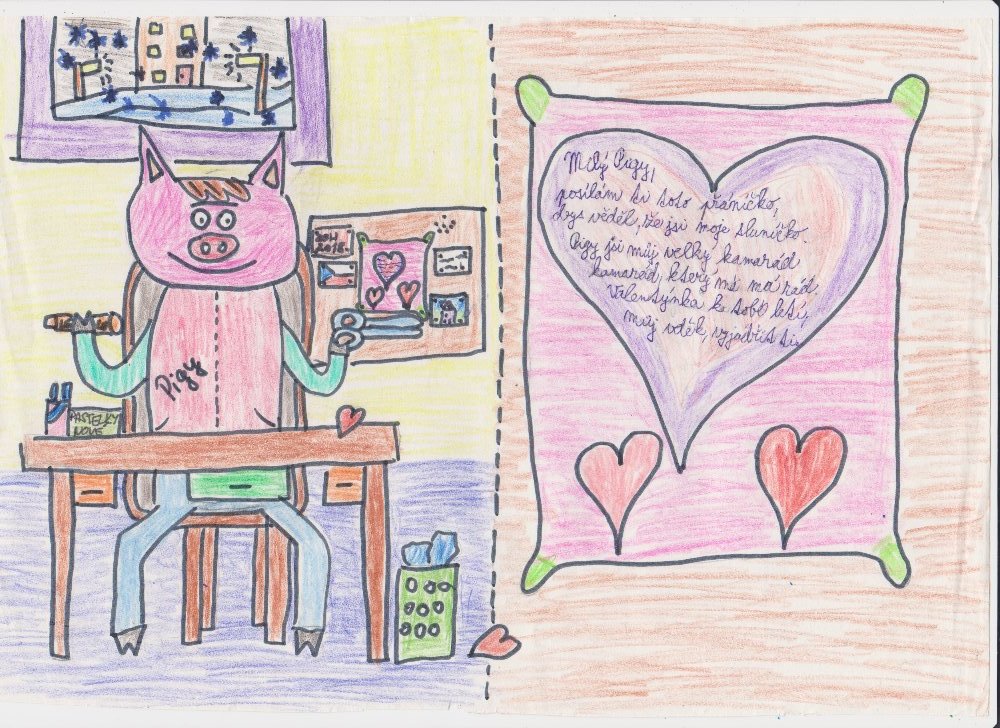 Pigy
PASTELKY
NOVÉ
Milý Pigy,
posílám ti toto přáníčko,
abys věděl, že jsi moje sluníčko.
Pigy jsi můj velký kamarád
kamarád, který mě má rád.
Valentýnka k tobě letí,
můj vděk, vyjádřit ti